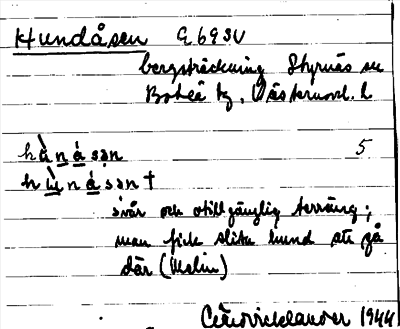 Hundåsen G693V
bergsträckning Styrnäs sn
Boteå tg, Västernorrl. l.
hùnásən 5
hùnásən †
svår och otillgänglig terräng;
man fick slita hund att gå
där (Melin)
1944